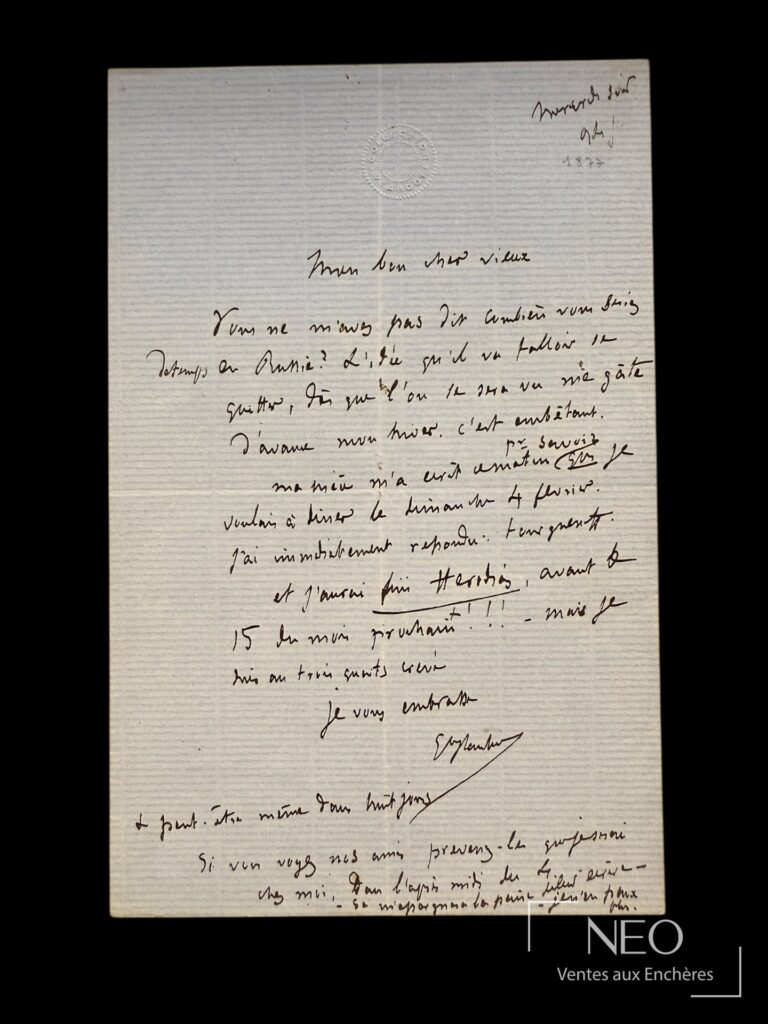 Mercredi soir
9h
1877
Mon bon cher vieux
Vous ne m'avez pas dit combien vous seriez
de temps en Russie? L'idée qu'il va falloir se
quitter, dès que l'on se sera vu me gâte
d'avance mon hiver. c'est embêtant.
ma nièce m'a écrit ce matin pr savoir qui je
voulais à diner le dimanche 4 fevrier.
J'ai immediatement repondu: tourgueneff.
et j'aurai fini Herodias, avant le
15 du mois prochain!!! - mais je
suis au trois quarts crevé
je vous embrasse
Gve Flaubert
& peut-être même dans huit jours
Si vous voyez nos amis prevenez-les que je serai
chez moi, Dans l'après midi du 4
- ça m'épargnera la peine de leur écrire - je n'en peux plus.
NEO
Ventes aux Enchères